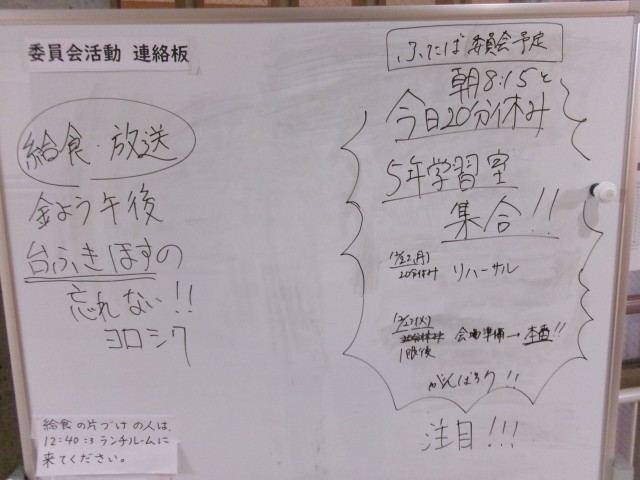 委員会活動 連絡板
給食・放送
金よう午後
台ふきほすの
忘れない!!
ヨロシク
給食の片づけの人は、
12:40ころランチルームに
来てください。
ふたば委員会予定
朝8:15と
今日20分休み
5年学習室
集合!!
(月)
20分休み リハーサル
(火)
1限後 会場準備→本番!!
がんばろう!!
注目!!!